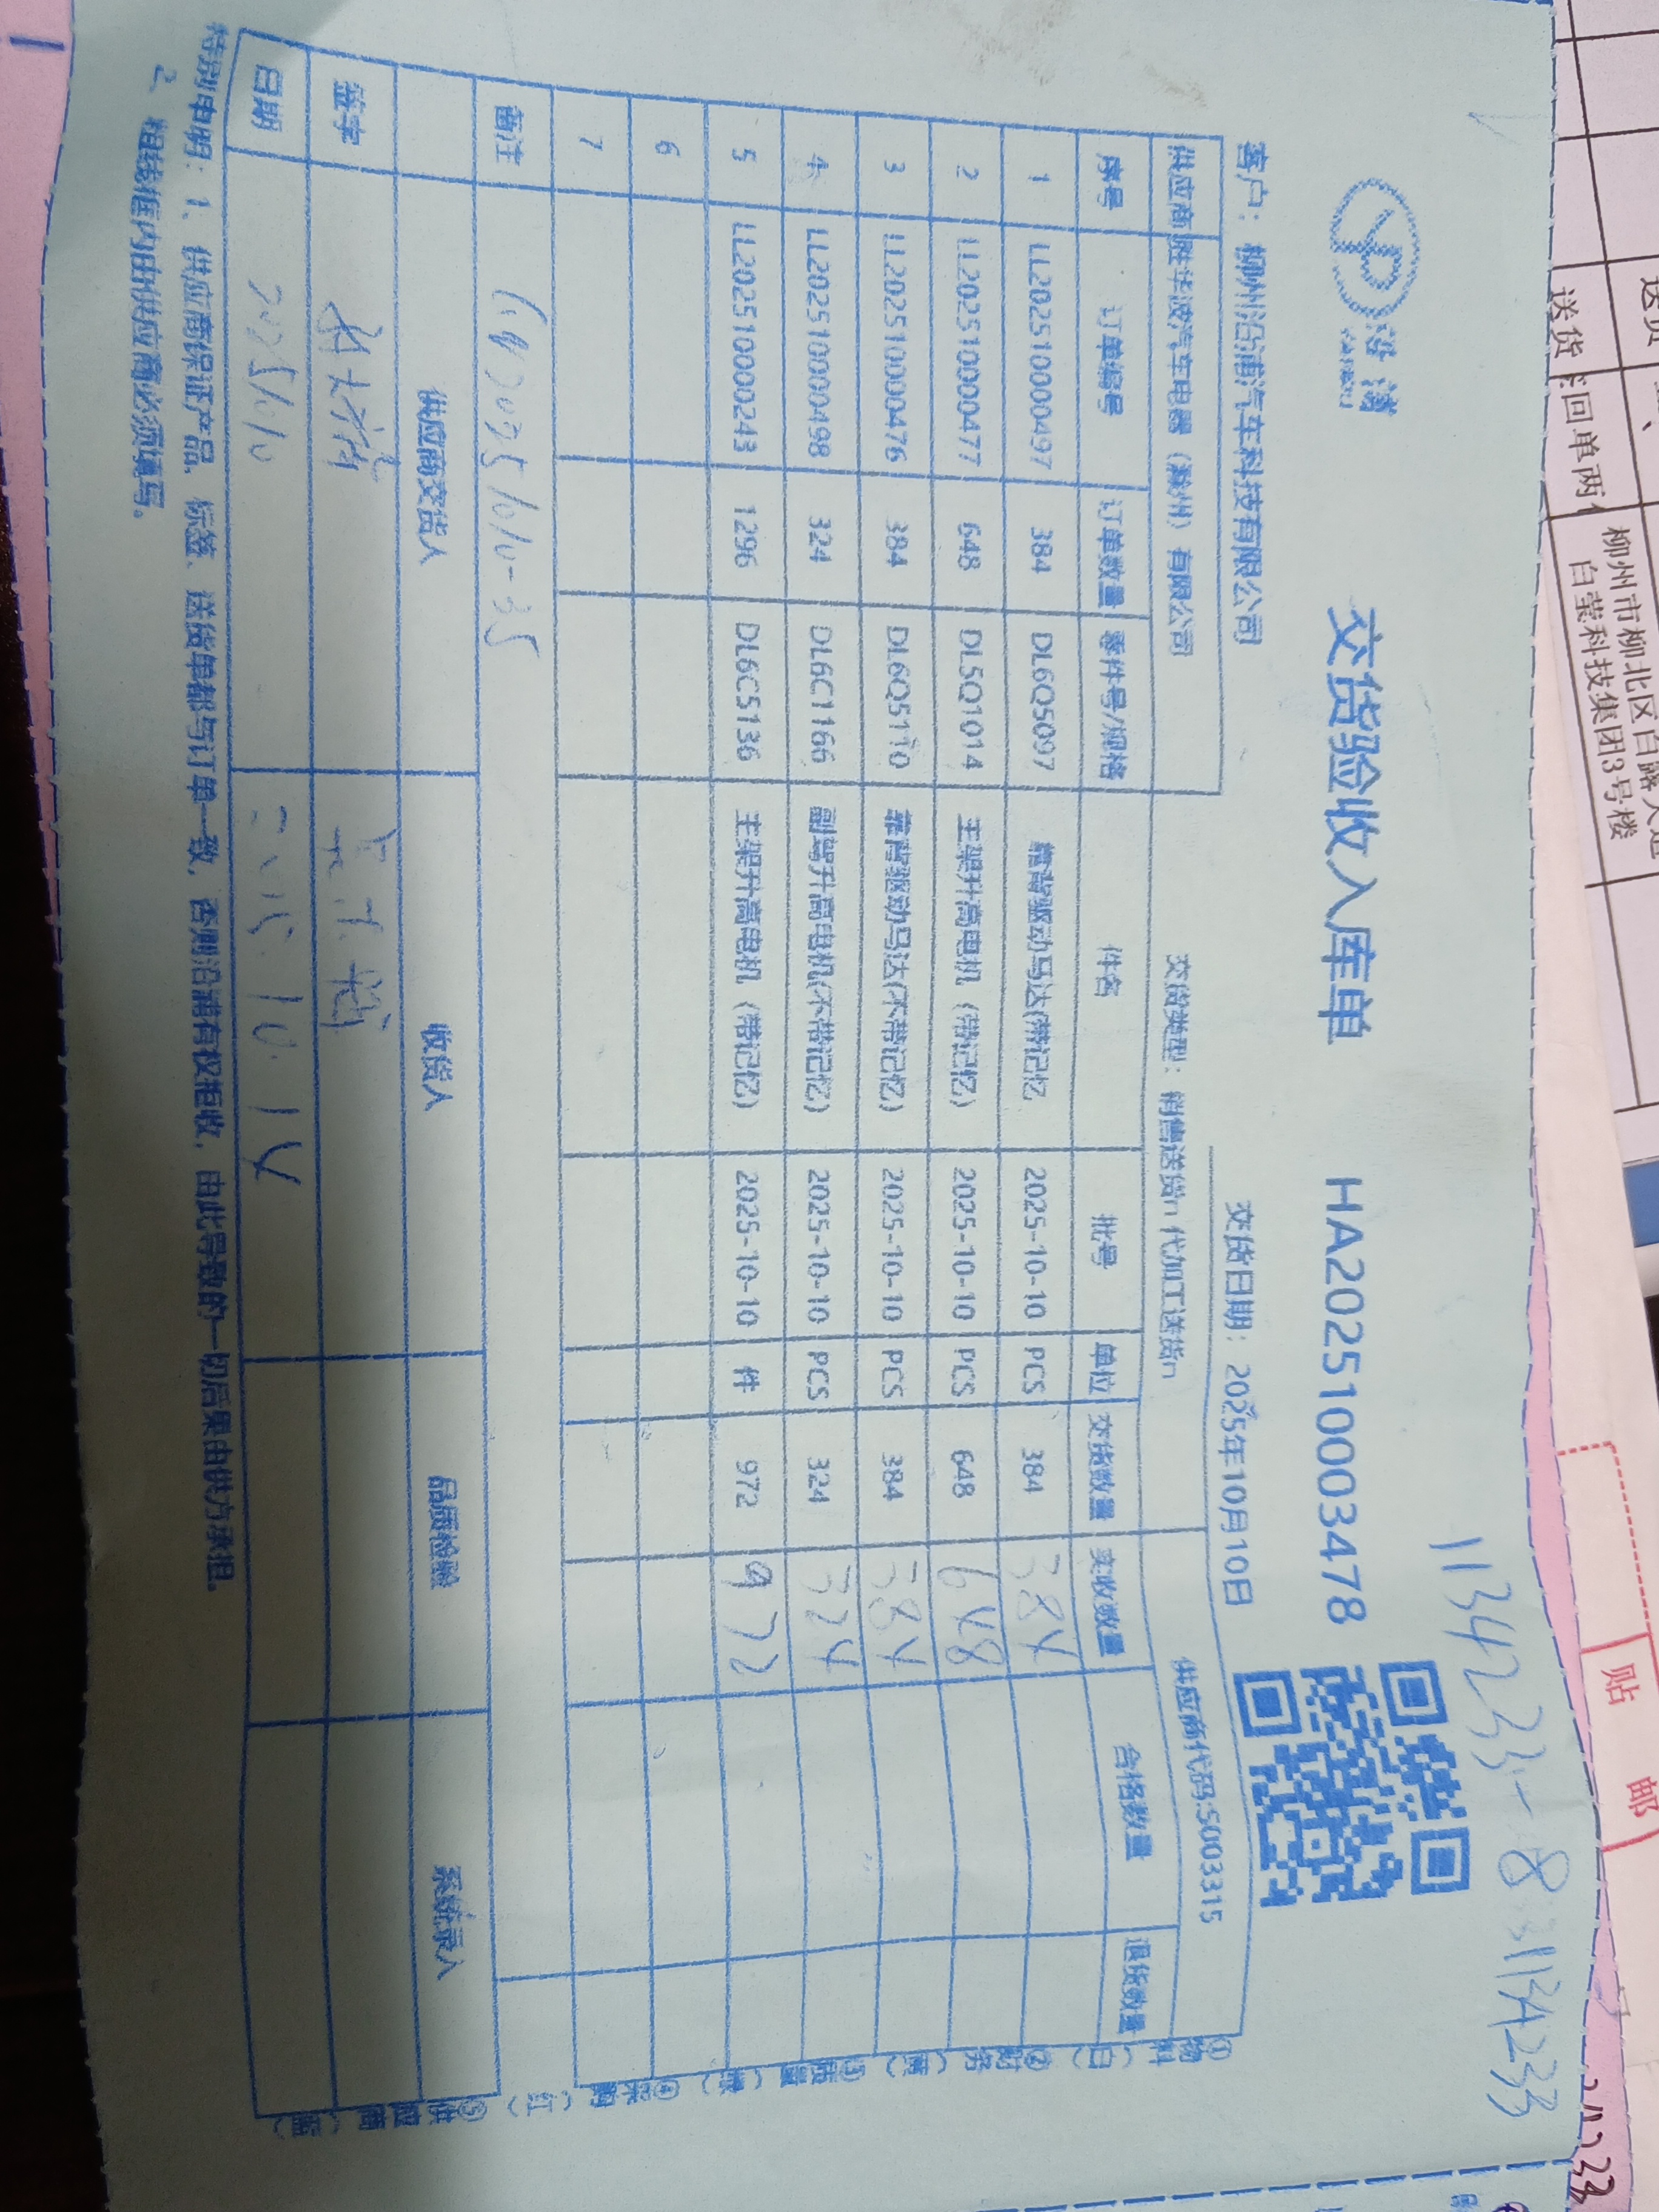 沿浦
交货验收入库单 HA202510003478
1134233-8 3 1134233
客户：柳州沿浦汽车科技有限公司 交货日期：2025年10月10日
供应商 胜华波汽车电器（滁州）有限公司 交货类型：销售送货n 代加工送货n 供应商代码:S003315
序号 订单编号 订单数量 零件号/规格 件名 批号 单位 交货数量 实收数量 合格数量 退货数量
1 LL20251000497 384 DL6Q5097 靠背驱动马达(带记忆 2025-10-10 PCS 384 384
2 LL20251000477 648 DL5Q1014 主架升高电机（带记忆） 2025-10-10 PCS 648 648
3 LL20251000476 384 DL6Q5110 靠背驱动马达(不带记忆) 2025-10-10 PCS 384 384
4 LL20251000498 324 DL6C1166 副驾升高电机(不带记忆) 2025-10-10 PCS 324 324
5 LL20251000243 1296 DL6C5136 主架升高电机（带记忆） 2025-10-10 件 972 972
6
7
备注 20251010-35
供应商交货人 收货人 品质检验 系统录入
签字
日期 20251010 2025.10.14
特别申明：1、供应商保证产品、标签、送货单都与订单一致，否则沿浦有权拒收，由此导致的一切后果由供方承担。
2、粗线框内由供应商必须填写。
①物料（白）②财务（黄）③质量（绿）④采购（红）⑤供应商（蓝）
送货
回单两
柳州市柳北区白露大道
白莹科技集团3号楼
贴 邮